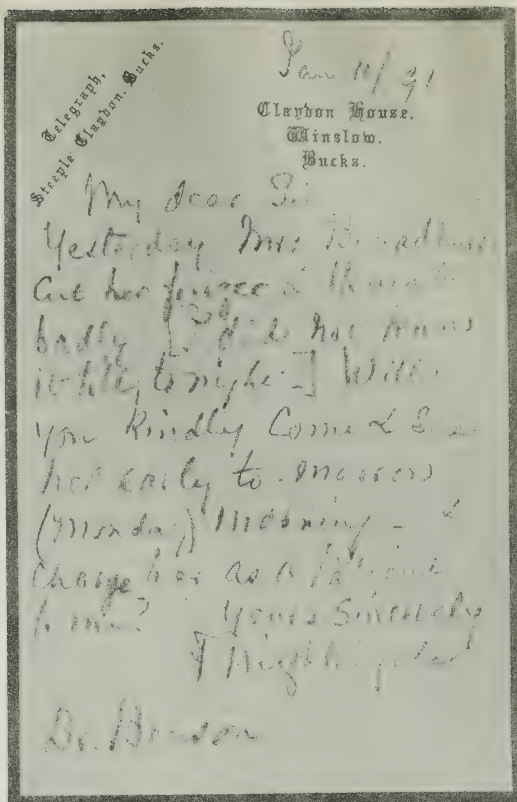 Jan 11/91
Telegraph,
Steeple Claydon. Bucks.
Claydon House.
Winslow.
Bucks.
My dear Sir
Yesterday Mrs
Cut her finger & thumb
badly [I did not know
it till tonight] Will
you kindly Come & see
her early to-morrow
(Monday) Morning - &
charge her as a Patient
to me?
Yours Sincerely
F Nightingale
Dr. Benson